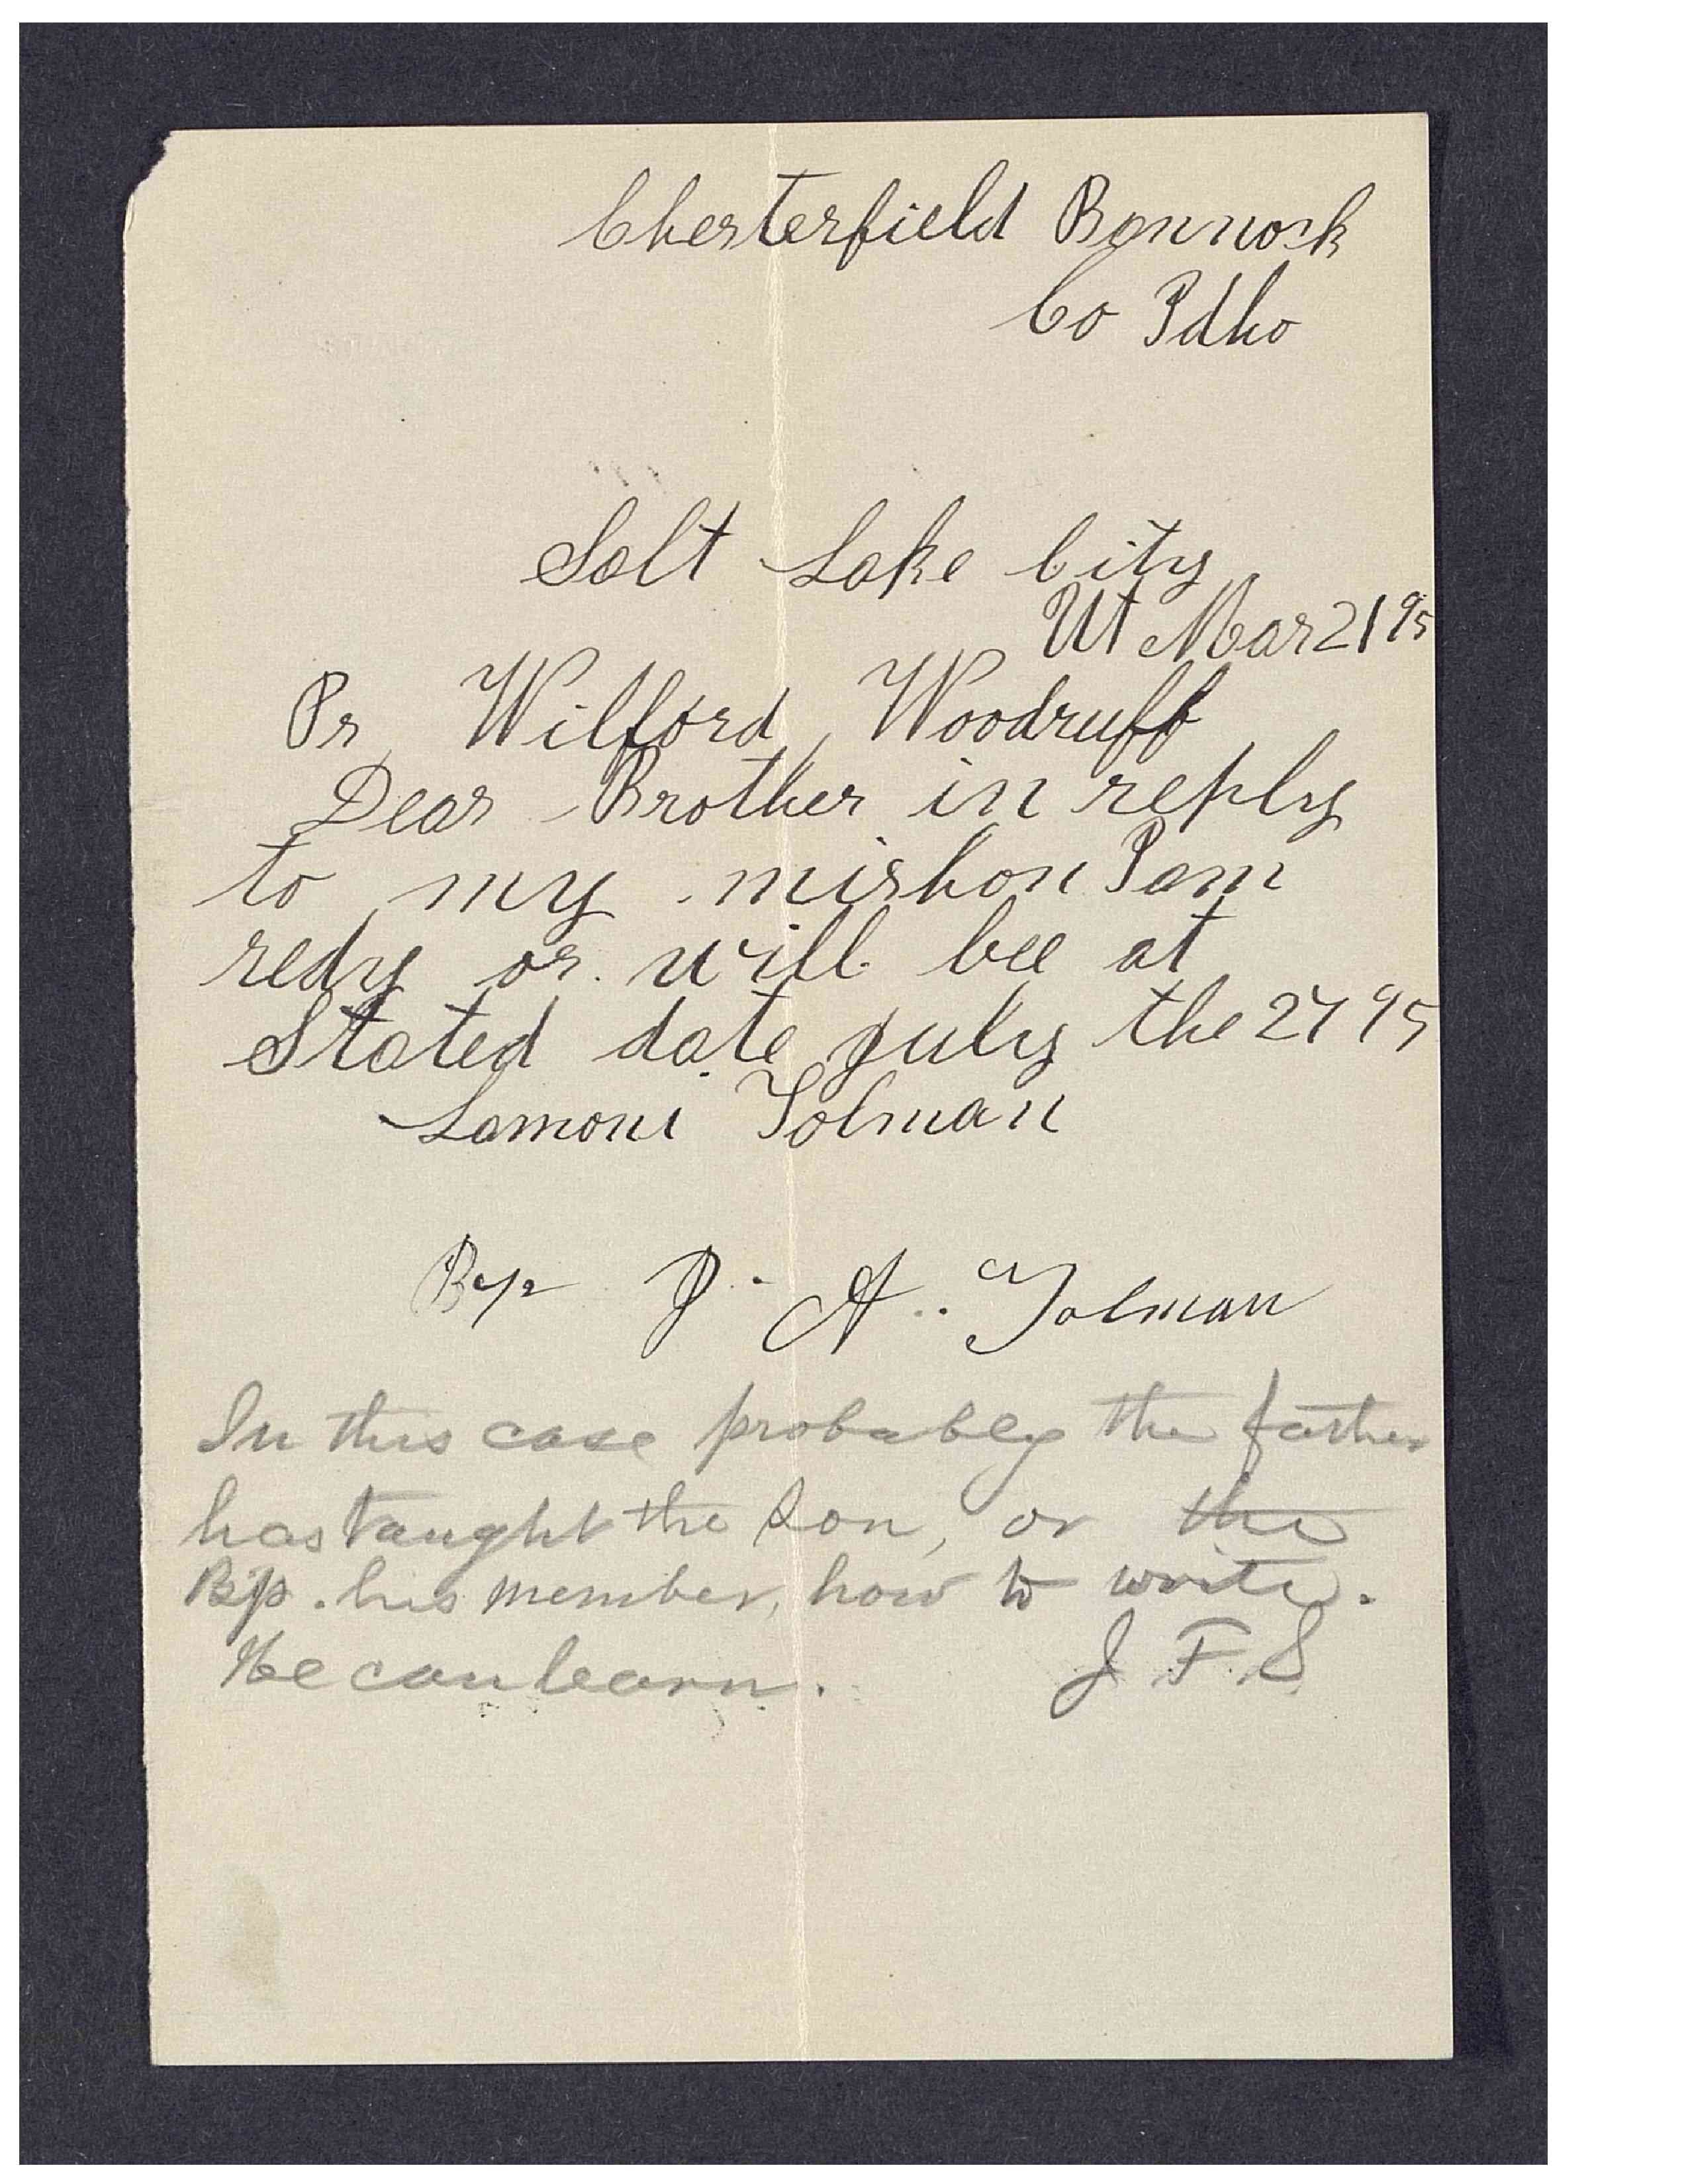 Chesterfield Bannock
Co Idho
Salt Lake City
Ut Mar 21 95
Pr Wilford Woodruff
Dear Brother in reply
to my mishon I am
redy or will bee at
Stated date July the 27 95
Lamoni Tolman
Bp J. A. Tolman
In this case probably the father
has taught the son, or the
Bp. his member, how to write.
He can learn. J. F. S.